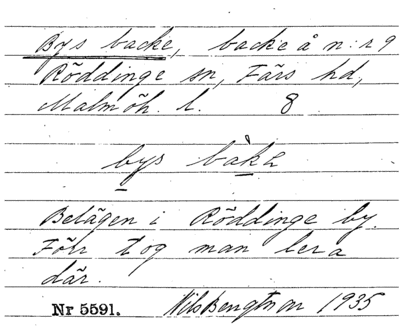 Bys backe, backe å n:r 9
Röddinge sn, Färs hd,
Malmöh. l. 8
bys bàka
Belägen i Röddinge by.
Förr tog man lera
där.
Nr 5591. Nils Bengtson 1935